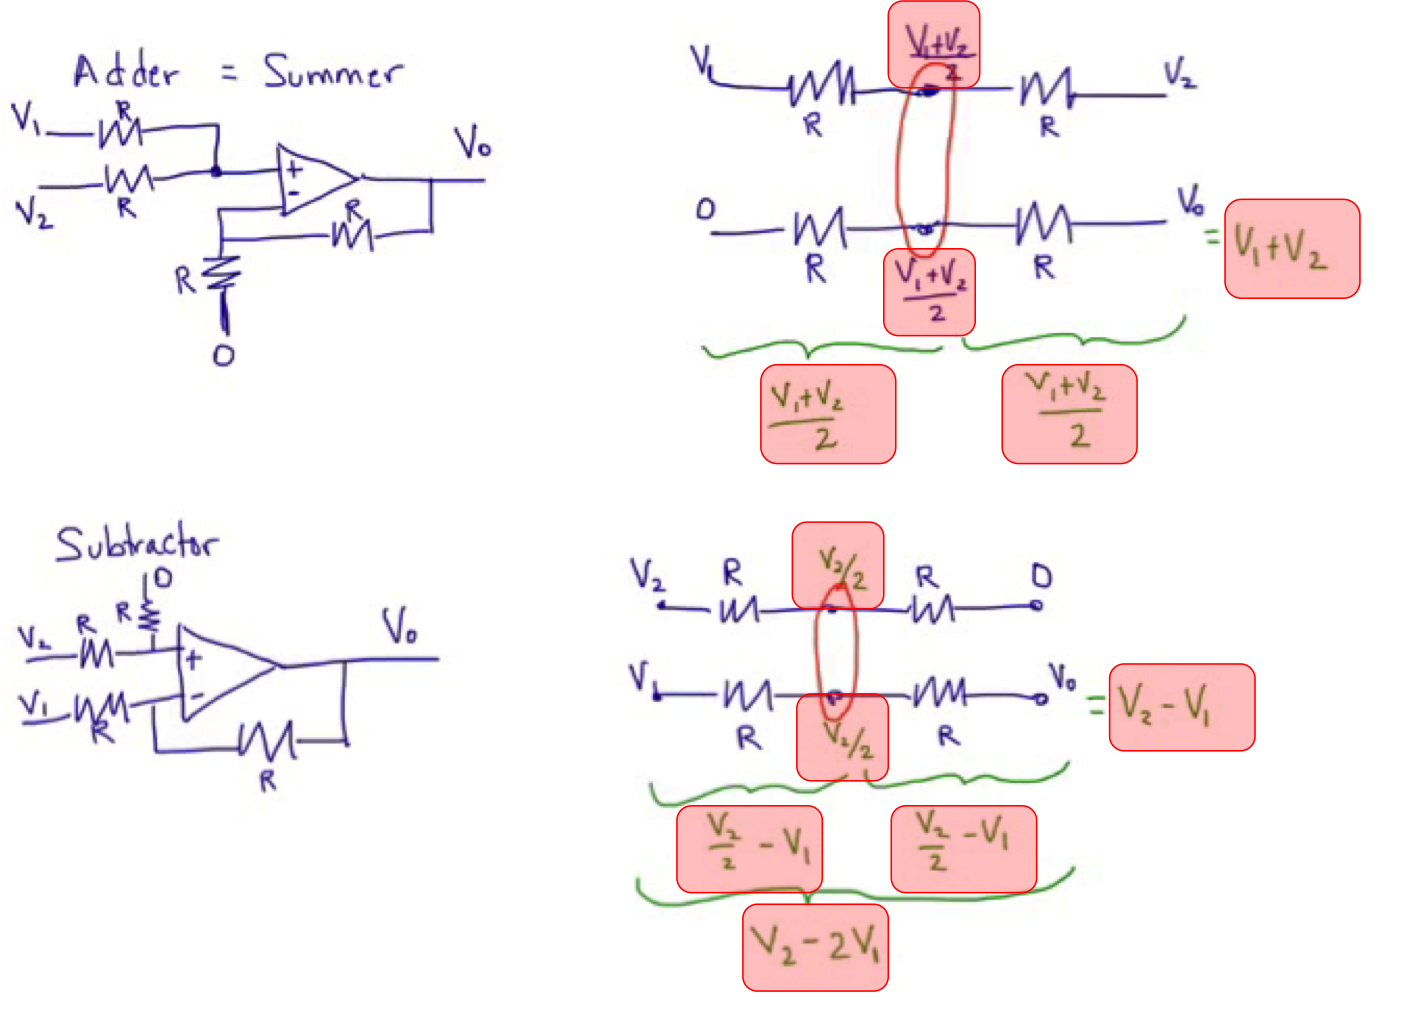 Adder = Summer
V₁
R
V₂
R
+
-
V₀
R
R
0
V₁
R
V₁+V₂
2
R
V₂
0
R
V₁+V₂
2
R
V₀ = V₁+V₂
V₁+V₂
2
V₁+V₂
2
Subtractor
0
R
V₂
R
V₁
R
+
-
V₀
R
V₂
R
V₂/2
R
0
V₁
R
V₂/2
R
V₀ = V₂-V₁
V₂
2 - V₁
V₂
2 - V₁
V₂-2V₁